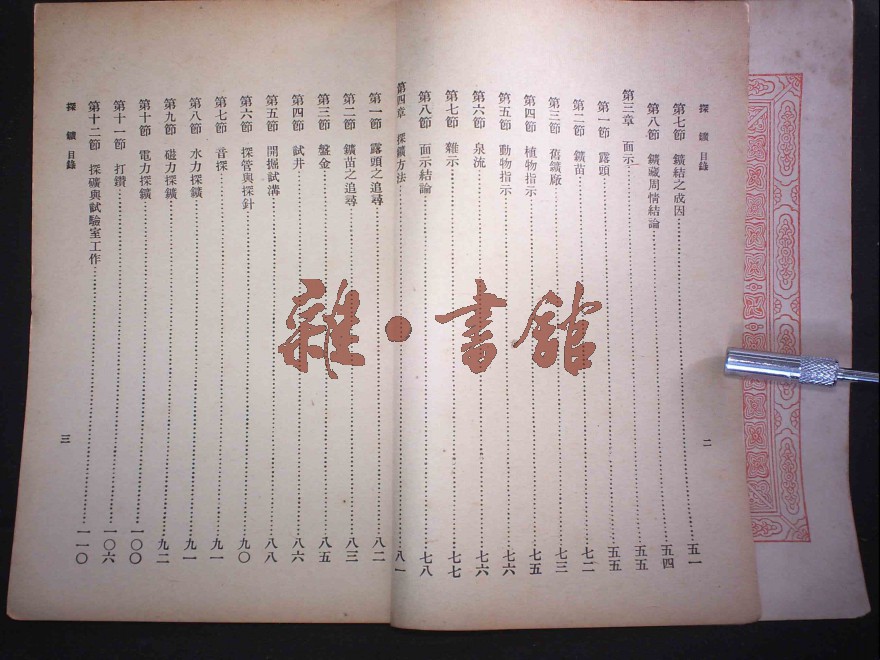 探鑛目錄
第七節 鑛結之成因……五一
第八節 鑛藏周情結論……五四
第三章 面示……五五
第一節 露頭……五五
第二節 鑛苗……七二
第三節 舊鑛厰……七三
第四節 植物指示……七五
第五節 動物指示……七六
第六節 泉流……七六
第七節 雜示……七七
第八節 面示結論……七八
二
第四章 探鑛方法……八一
第一節 露頭之追尋……八二
第二節 鑛苗之追尋……八三
第三節 盤金……八五
第四節 試井……八六
第五節 開掘試溝……八八
第六節 探管與探針……九〇
第七節 音探……九一
第八節 水力探鑛……九一
第九節 磁力探鑛……九二
第十節 電力探鑛……一〇〇
第十一節 打鑽……一〇六
第十二節 探礦與試驗室工作……一一〇
探鑛目錄
三
雜·書館